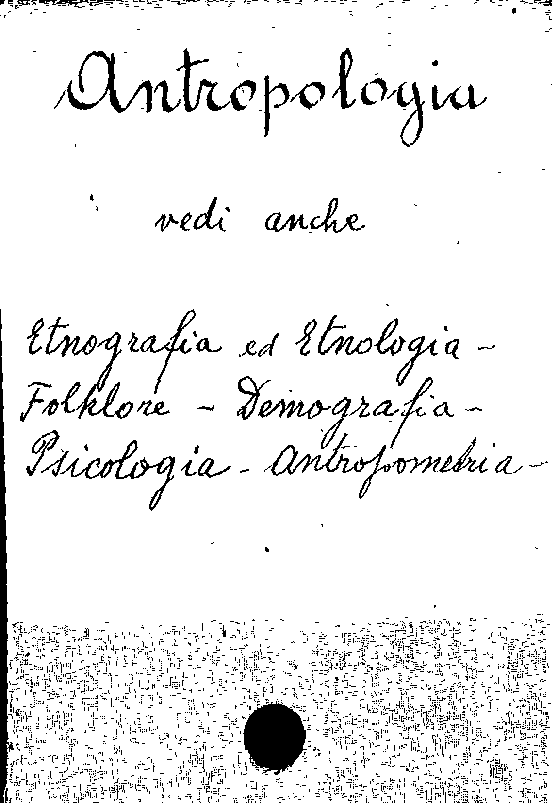 Antropologia
vedi anche
Etnografia ed Etnologia -
Folklore - Demografia -
Psicologia - Antropometria -